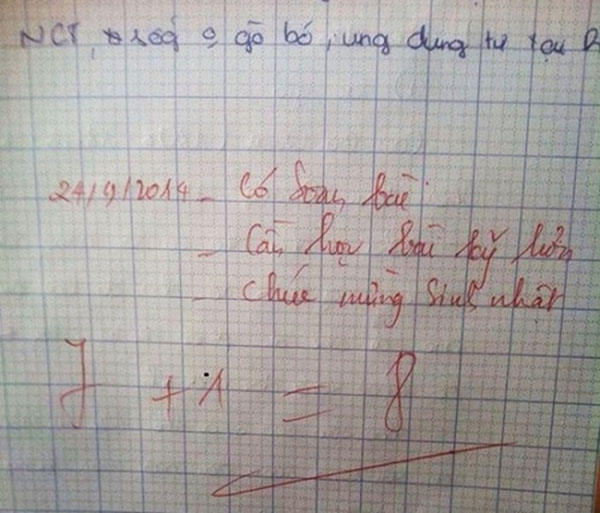 NCT, sống gò bó, ung dung tự tại
24/9/2014 - Có soạn bài
- Cần học bài kỹ hơn
- Chúc mừng sinh nhật
7 + 1 = 8